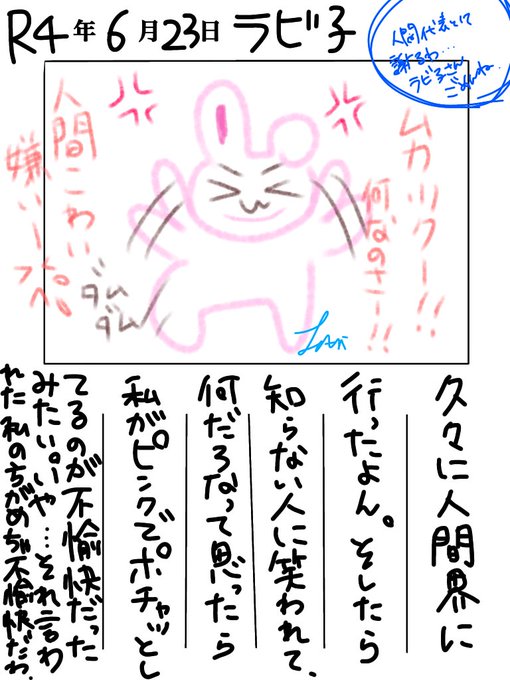 R4年6月23日 ラビ子
人間代表として
謝るわ…
ラビ子さん
ごめんね
ムカツクー!!
何なのさー!!
人間こわい
嫌いー
ダム
ダム
久々に人間界に
行ったよん。そしたら
知らない人に笑われて、
何だろなって思ったら
私がピンクでポチャッとし
てるのが不愉快だった
みたい。いや…それ言わ
れた私のちがめちゃ不愉快だわ。